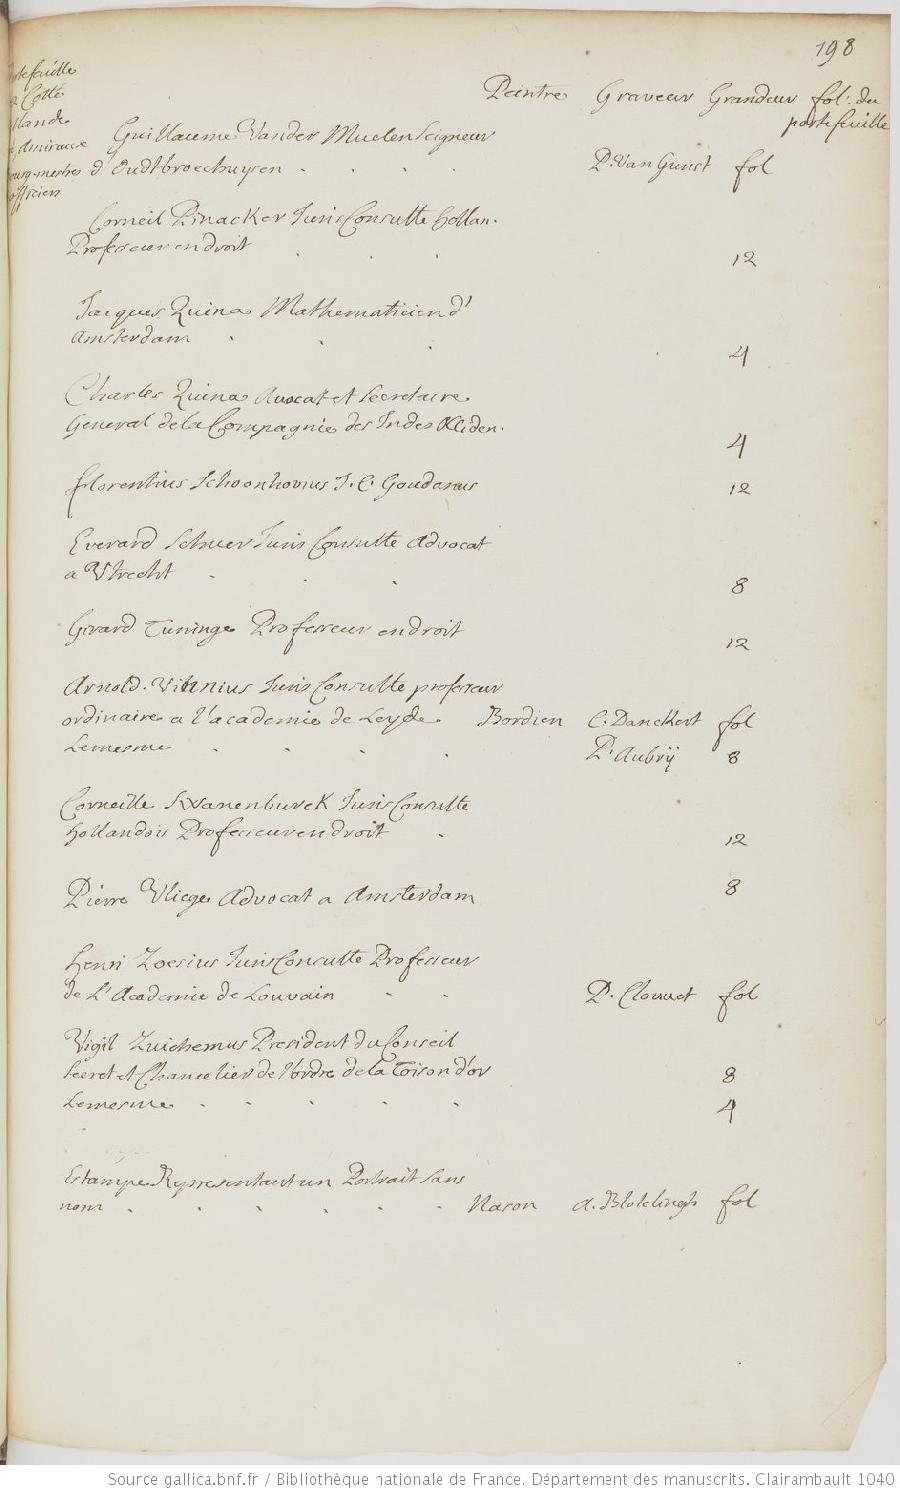 198
Peintre Graveur Grandeur fol. du
portefeuille
Cotté
Guillaume Vander Muelen Seigneur
d'Oudtbroechuysen . . . . P. Van Gunst fol
Corneil Pinacker JurisConsulte hollan.
Professeur en droit . . . 12
Jacques Quina Mathematicien d'
Amsterdam . . . 4
Charles Quina Avocat et Secretaire
General de la Compagnie des Indes Occiden. 4
florentius Schoonhovius J. C. Goudanus 12
Everard Schuer Juris Consulte Advocat
a Utrecht . . . 8
Girard Tuninge Professeur en droit 12
Arnold. Vinnius Juris Consulte professeur
ordinaire a l'academie de Leyde Bordien C. Danckert fol
Lemesme . . . . P. Aubrÿ 8
Corneille Swanenburck Juris Consulte
hollandois Professeur en droit . 12
Pierre Vliege Advocat a Amsterdam 8
Henri Zoesius Juris Consulte Professeur
de l'Academie de Louvain . . P. Clouuet fol
Vigil Zuichemus President du Conseil
Secret et Chancelier de l'ordre de la Toison d'or 8
Lemesme . . . . . 4
Estampe Representant un Portrait sans
nom . . . . . . Nason A. Blotelingh fol
Source gallica.bnf.fr / Bibliothèque nationale de France. Département des manuscrits. Clairambault 1040